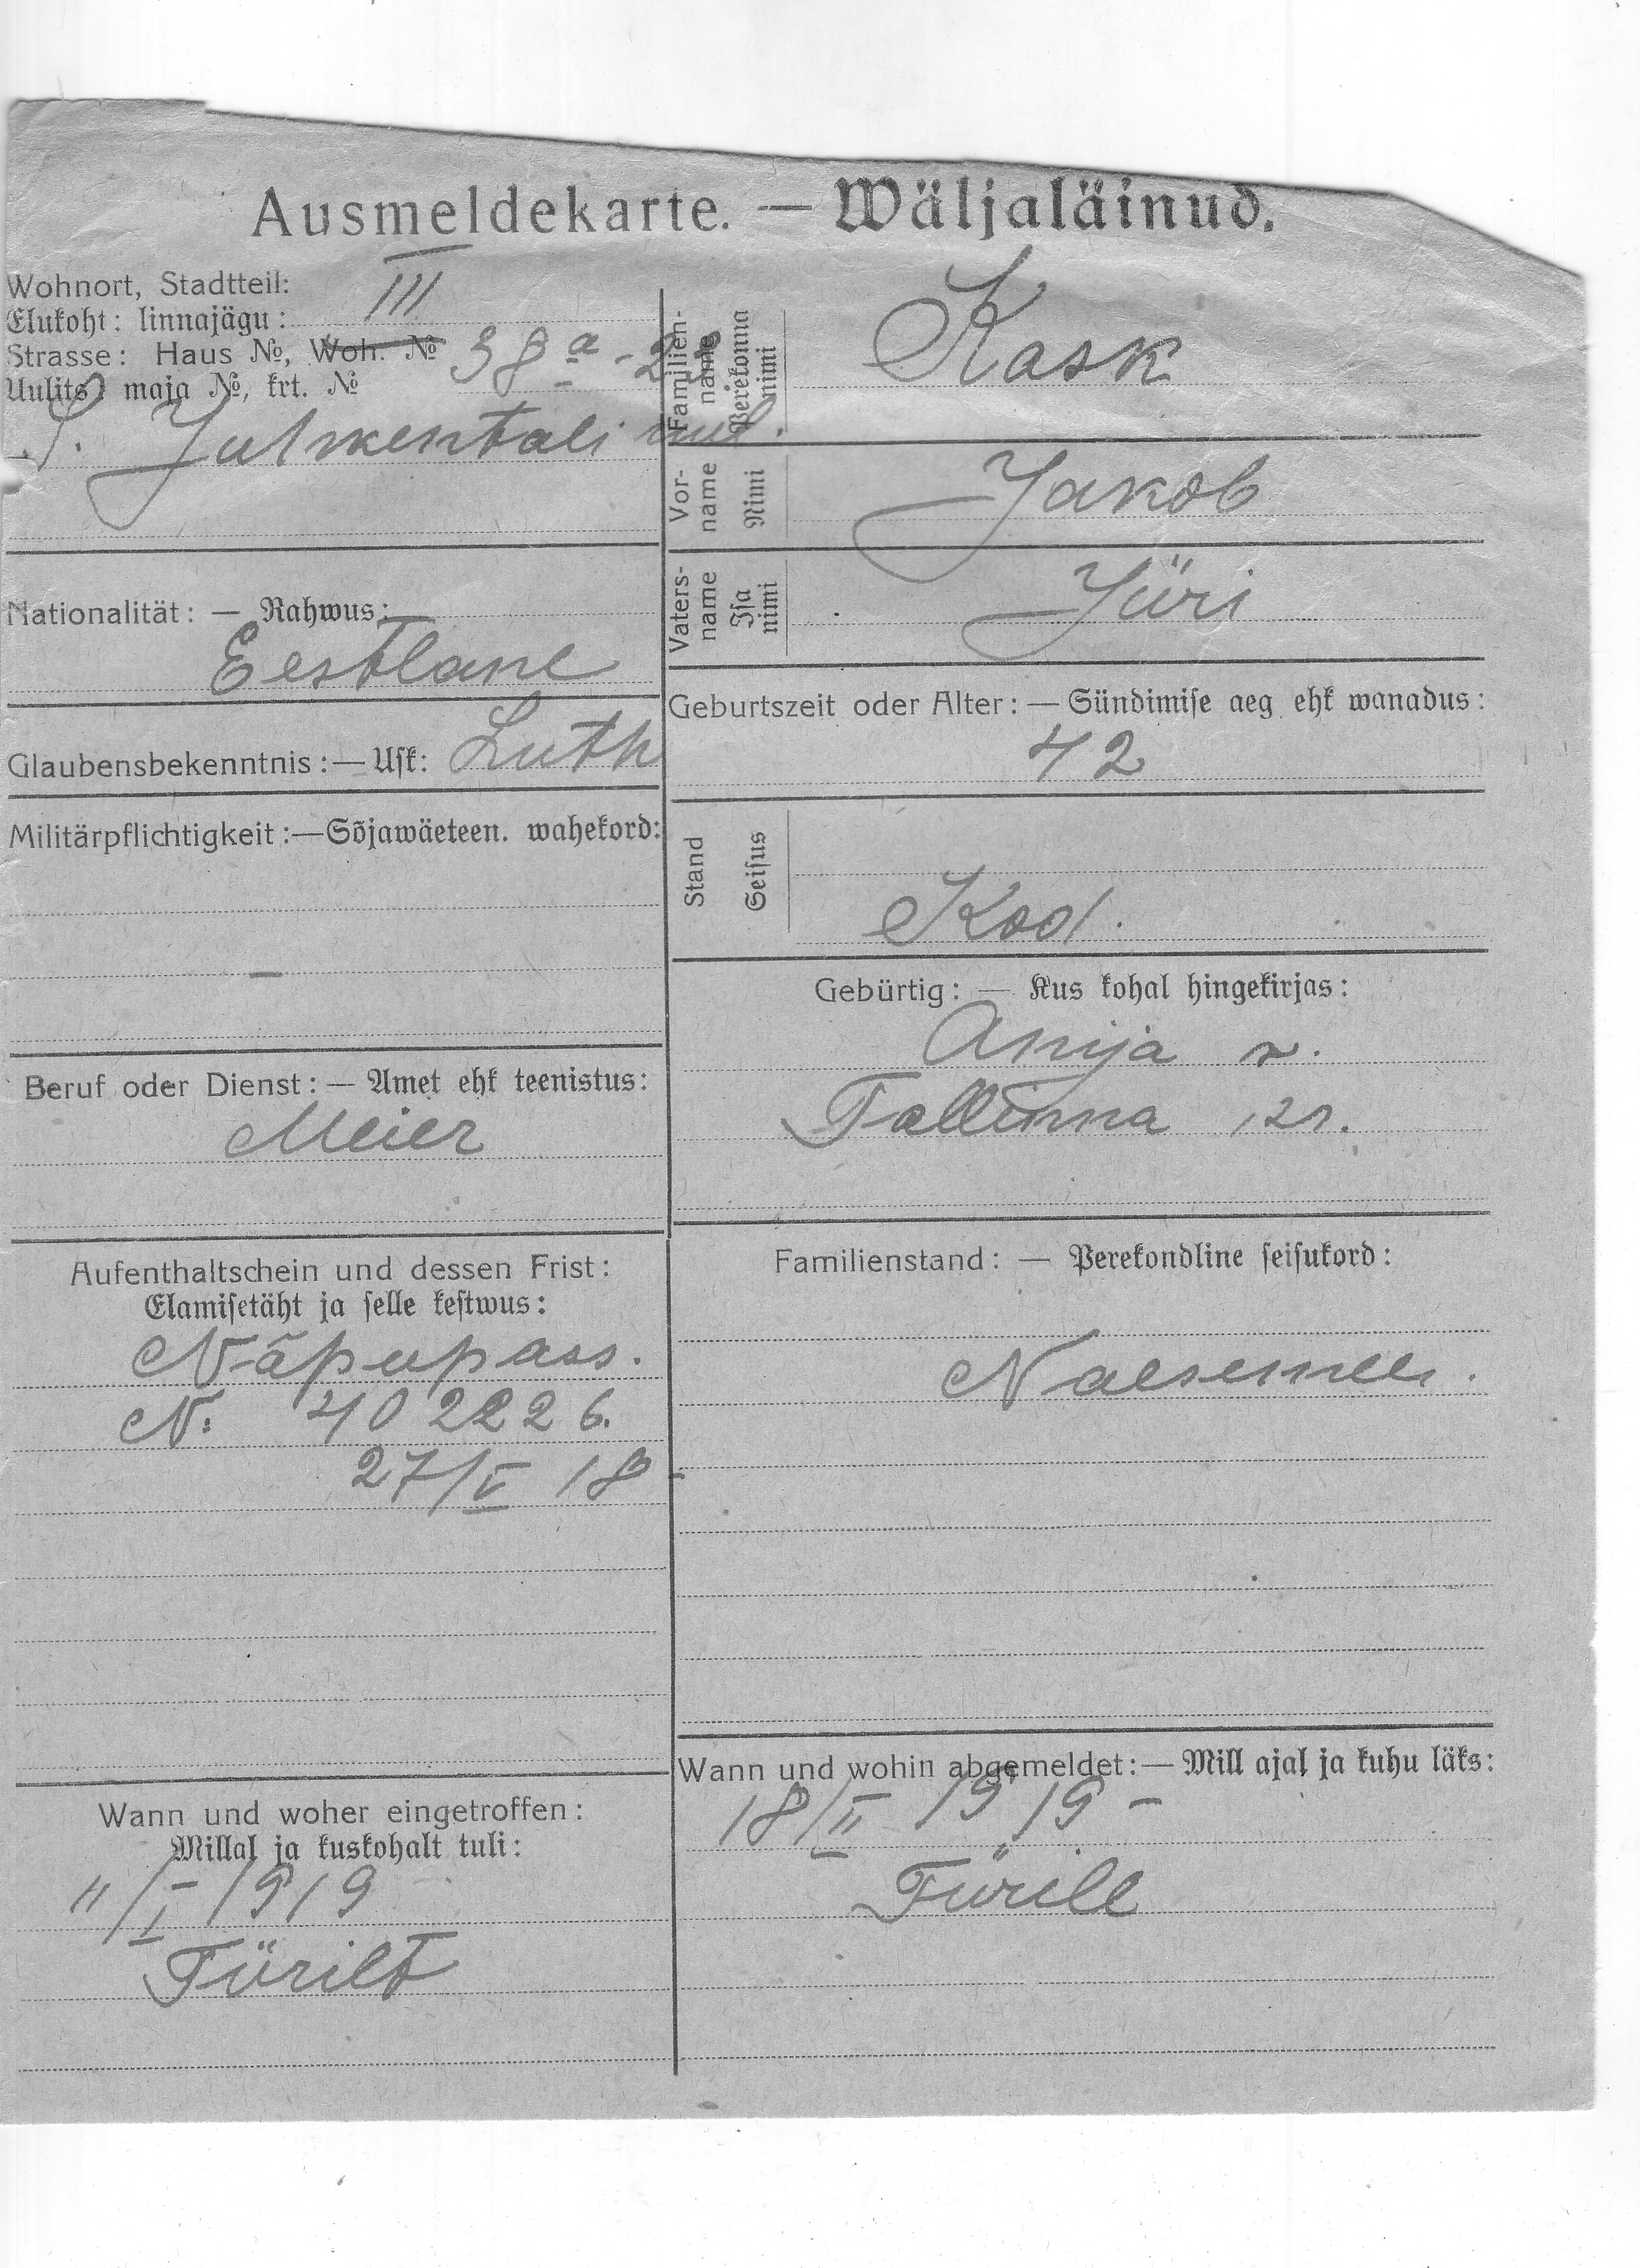 Ausmeldekarte. — Wäljaläinud.
Wohnort, Stadtteil:
Elukoht: linnajägu: III
Strasse: Haus №, Woh. № 38 a - 2
Uulits, maja №, krt. №
S. Julkentali uul.
Familien-name
Perekonna nimi
Kask
Vor-name
Nimi
Jakob
Vaters-name
Isa nimi
Jüri
Nationalität: — Rahwus:
Eestlane
Glaubensbekenntnis: — Usk: Luth
Geburtszeit oder Alter: — Sündimise aeg ehk wanadus:
42
Militärpflichtigkeit: — Sõjawäeteen. wahekord:
—
Stand
Seisus
Kod.
Gebürtig: — Kus kohal hingekirjas:
Anija v.
Tallinna kr.
Beruf oder Dienst: — Amet ehk teenistus:
Meier
Aufenthaltschein und dessen Frist:
Elamisetäht ja selle kestwus:
Näpupass.
N: 402226.
27/V 18 -
Familienstand: — Perekondline seisukord:
Naesemees.
Wann und woher eingetroffen:
Millal ja kuskohalt tuli:
11/I 1919
Türilt
Wann und wohin abgemeldet: — Mill ajal ja kuhu läks:
18/II 1919 -
Türile